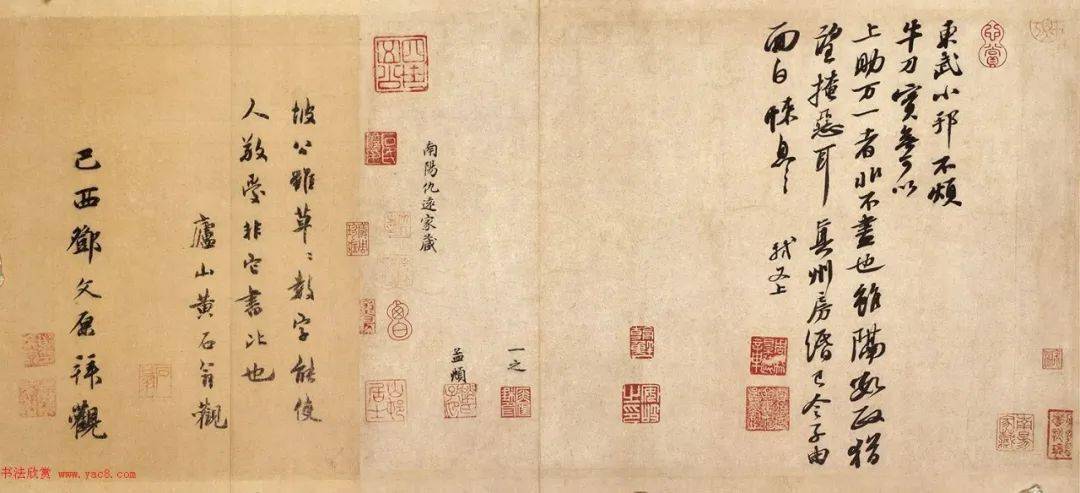 東武小邦不煩
牛刀實無可以
上助万一者非不盡也雖隔數政猶
望掩惡耳 真州房緡已令子由
面白悚息〻
軾又上
一之
孟頫
南陽仇遠家藏
山邨居士
坡公雖草〻數字能使
人敬愛非它書比也
廬山黃石翁觀
己酉鄧文原拜觀
书法欣赏 www.yac8.com